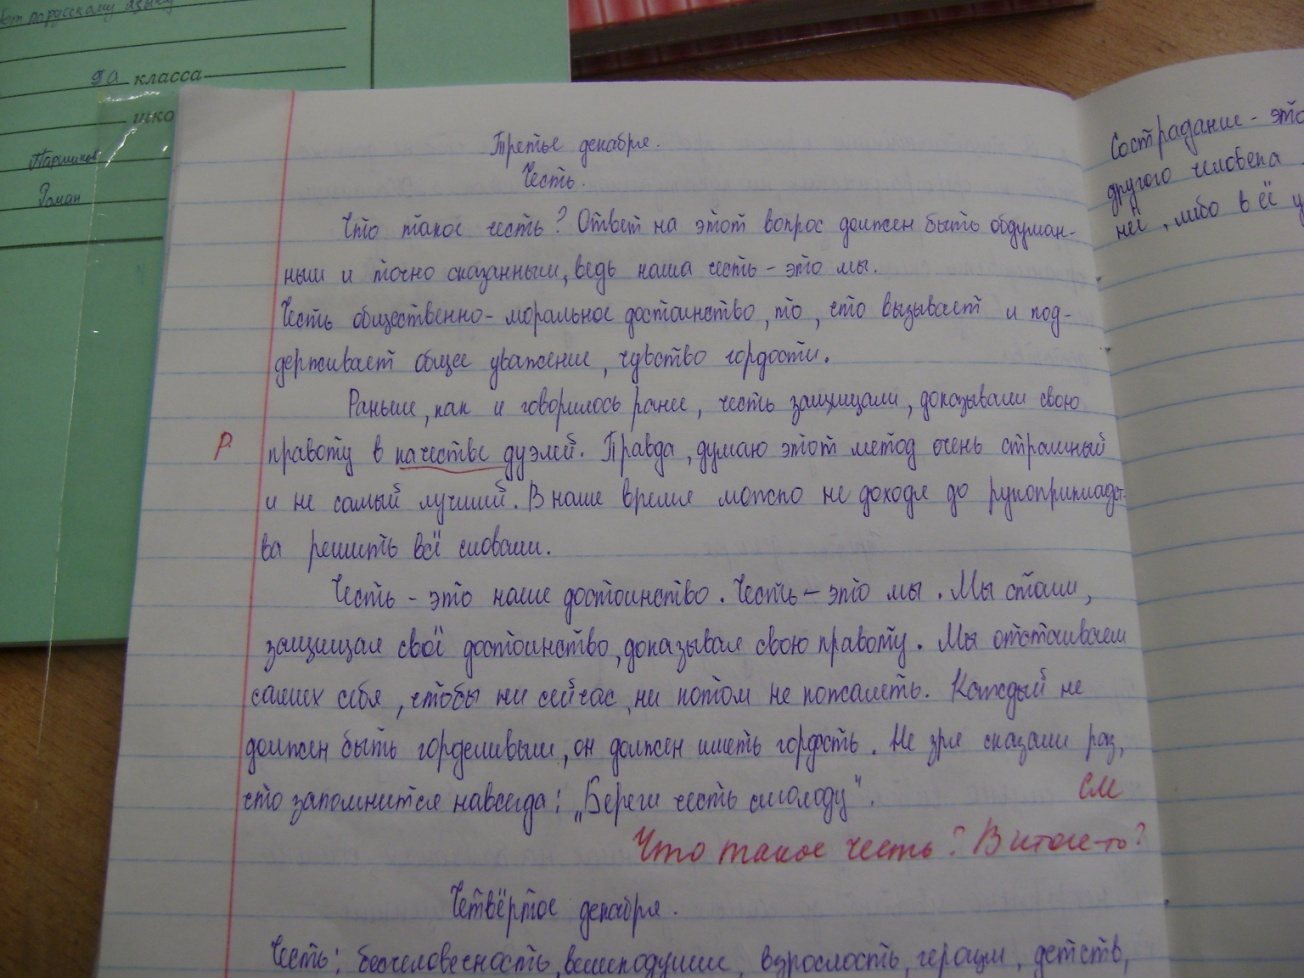 по русскому языку
9а класса
шко
Паршиков
Роман
Третье декабря.
Честь.
Что такое честь? Ответ на этот вопрос должен быть обдуман-
ным и точно сказанным, ведь наша честь – это мы.
Честь общественно-моральное достоинство, то, что вызывает и под-
держивает общее уважение, чувство гордости.
Раньше, как и говорилось ранее, честь защищали, доказывали свою
Р правоту в качестве дуэлей. Правда, думаю этот метод очень страшный
и не самый лучший. В наше время можно не доходя до рукоприкладст-
ва решить всё словами.
Честь – это наше достоинство. Честь – это мы. Мы стоим,
защищая своё достоинство, доказывая свою правоту. Мы отстаиваем
самих себя, чтобы ни сейчас, ни потом не пожалеть. Каждый не
должен быть горделивым, он должен иметь гордость. Не зря сказали раз,
что запомнится навсегда: „Береги честь смолоду".
см
Что такое честь? В итоге-то?
Четвёртое декабря.
Честь: бесчеловечность, великодушие, взрослость, героизм, детств,
Сострадание - это
другого человека
ней, либо в её у